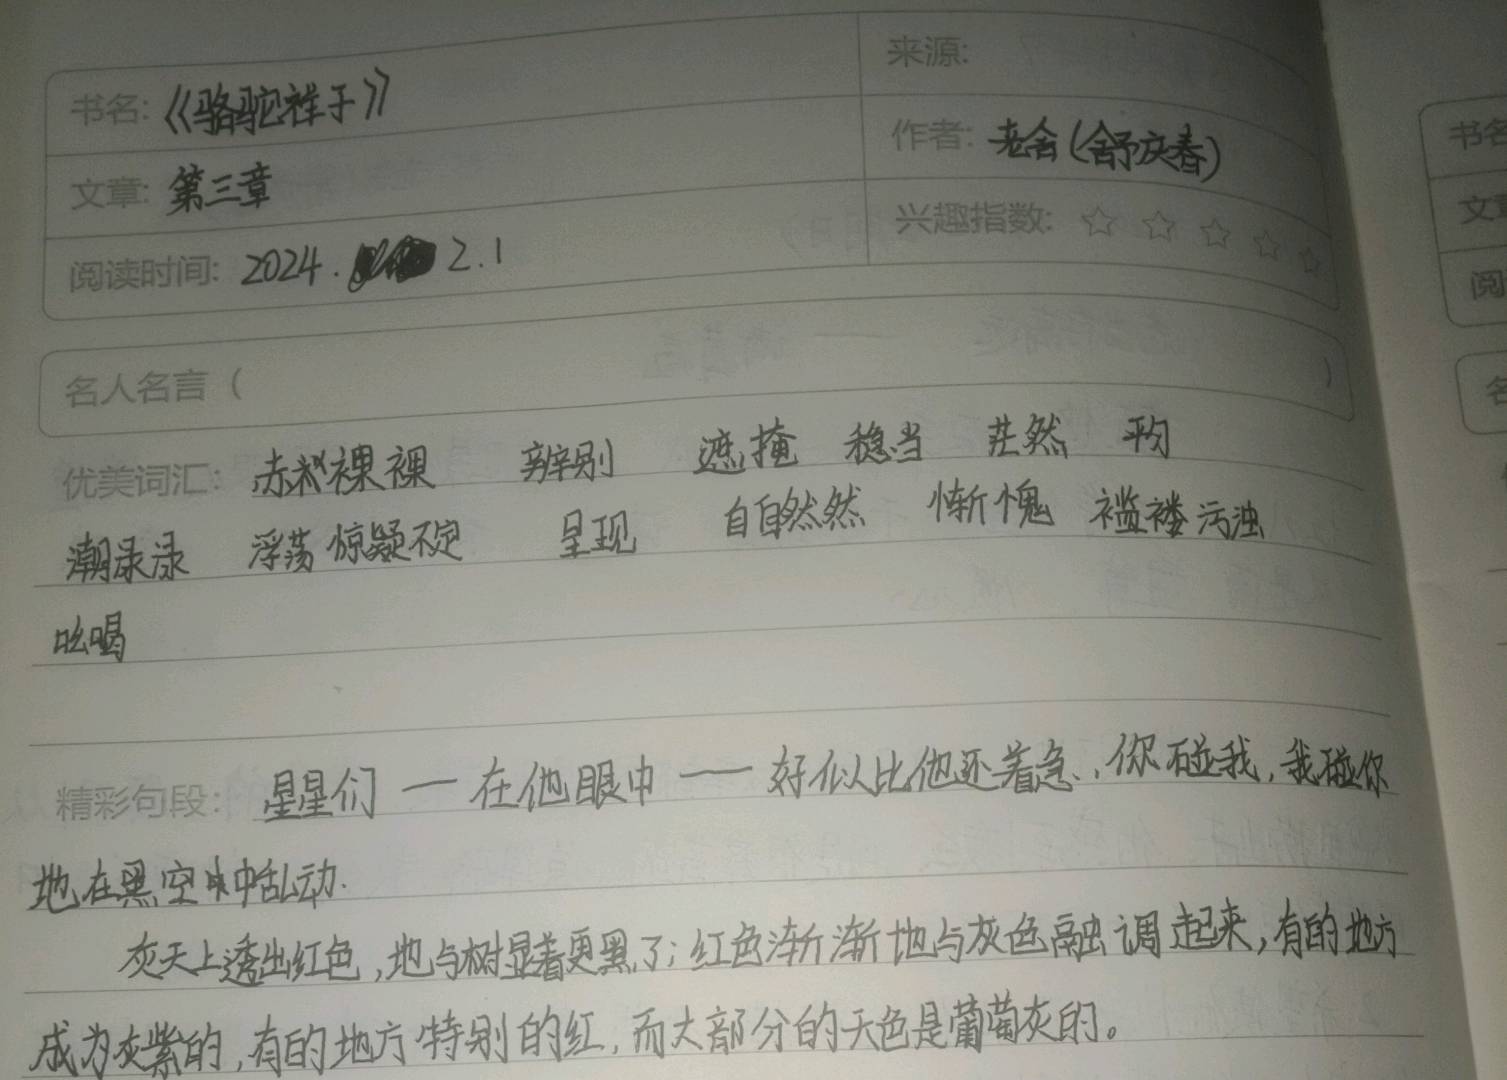 书名:《骆驼祥子》
来源:
文章:第三章
作者:老舍(舒庆春)
阅读时间:2024. 2.1
兴趣指数:☆☆☆☆☆
名人名言( )
优美词汇:赤裸裸 辨别 遮掩 稳当 茫然 平均
潮渌渌 浮荡 惊疑不定 呈现 自自然然 惭愧 褴褛 污浊
吆喝
精彩句段:星星们——在他眼中——好似比他还着急,你碰我,我碰你
地在黑空中乱动.
灰天上透出红色,地与树显着更黑了;红色渐渐地与灰色融调起来,有的地方
成为灰紫的,有的地方特别的红,而大部分的天色是葡萄灰的。
书名
文章
阅
名